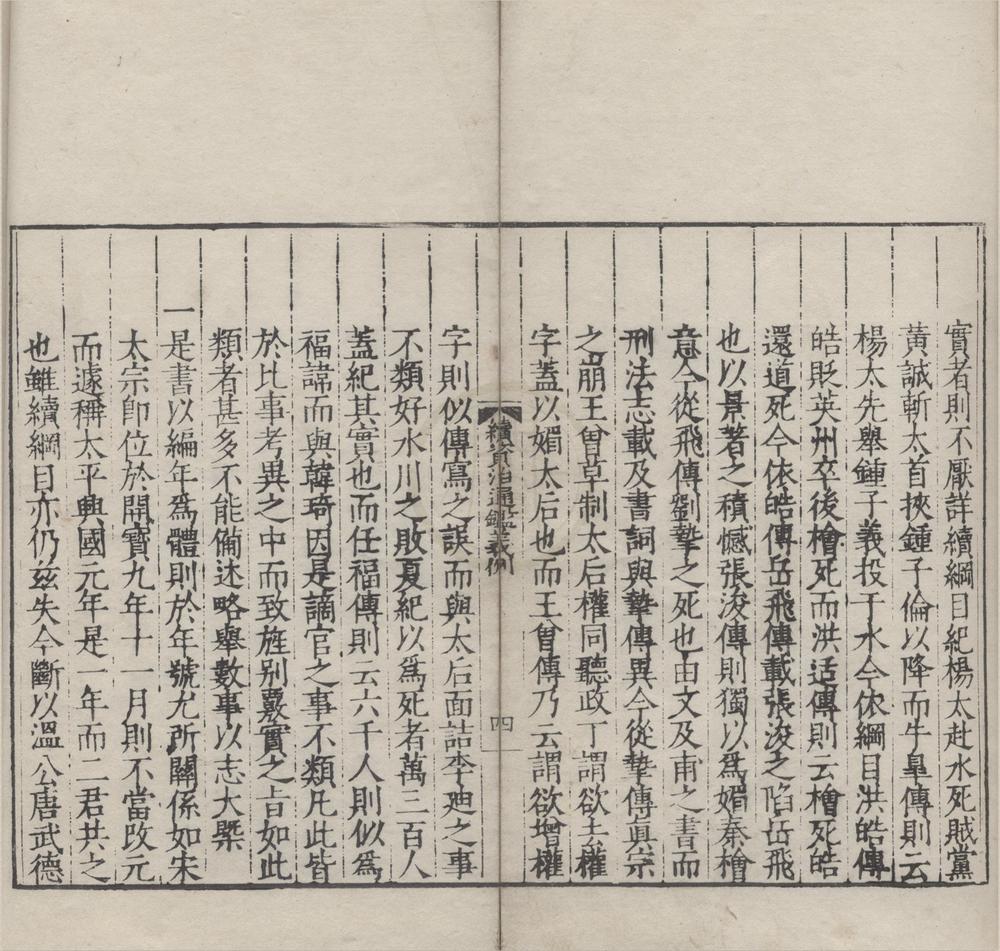 實者則不厭詳續綱目紀楊太赴水死賊黨
黃誠斬太首挾鍾子倫以降而牛皐傳則云
楊太先舉鍾子義投于水今依綱目洪皓傳
皓貶英州卒後檜死而洪适傳則云檜死皓
還道死今依皓傳岳飛傳載張浚之陷岳飛
也以景著之積憾張浚傳則獨以爲媚秦檜
意今從飛傳劉摯之死也由文及甫之書而
刑法志載及書詞與摯傳異今從摯傳眞宗
之崩王曾草制太后權同聽政丁謂欲去權
字蓋以媚太后也而王曾傳乃云謂欲增權
續資治通鑑義例
四
字則似傳寫之誤而與太后面詰李廸之事
不類好水川之敗夏紀以爲死者萬三百人
蓋紀其實也而任福傳則云六千人則似爲
福諱而與韓琦因是謫官之事不類凡此皆
於比事考異之中而致旌别覈實之旨如此
類者甚多不能備述略舉數事以志大槩
一是書以編年爲體則於年號尤所關係如宋
太宗卽位於開寶九年十一月則不當改元
而遽稱太平興國元年是一年而二君共之
也雖續綱目亦仍茲失今斷以溫公唐武德